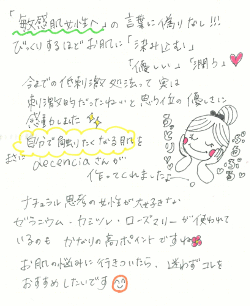 「敏感肌女性へ」の言葉に偽りなし!!!
びっくりするほどお肌に「染み込む」
「優しい」「潤う」
今までの低刺激処法って実は
刺激的だったねいと思う位の優しさに
感動しました
自分で触りたくなる肌を
まさに decenciaさんが
作ってくれました
ナチュラル思考の女性が大好きな
ゼラニウム・カミツレ・ローズマリーが使われて
いるのも かなりの高ポイントですね
お肌の悩みに行きついたら、迷わずコレを
おすすめしたいです